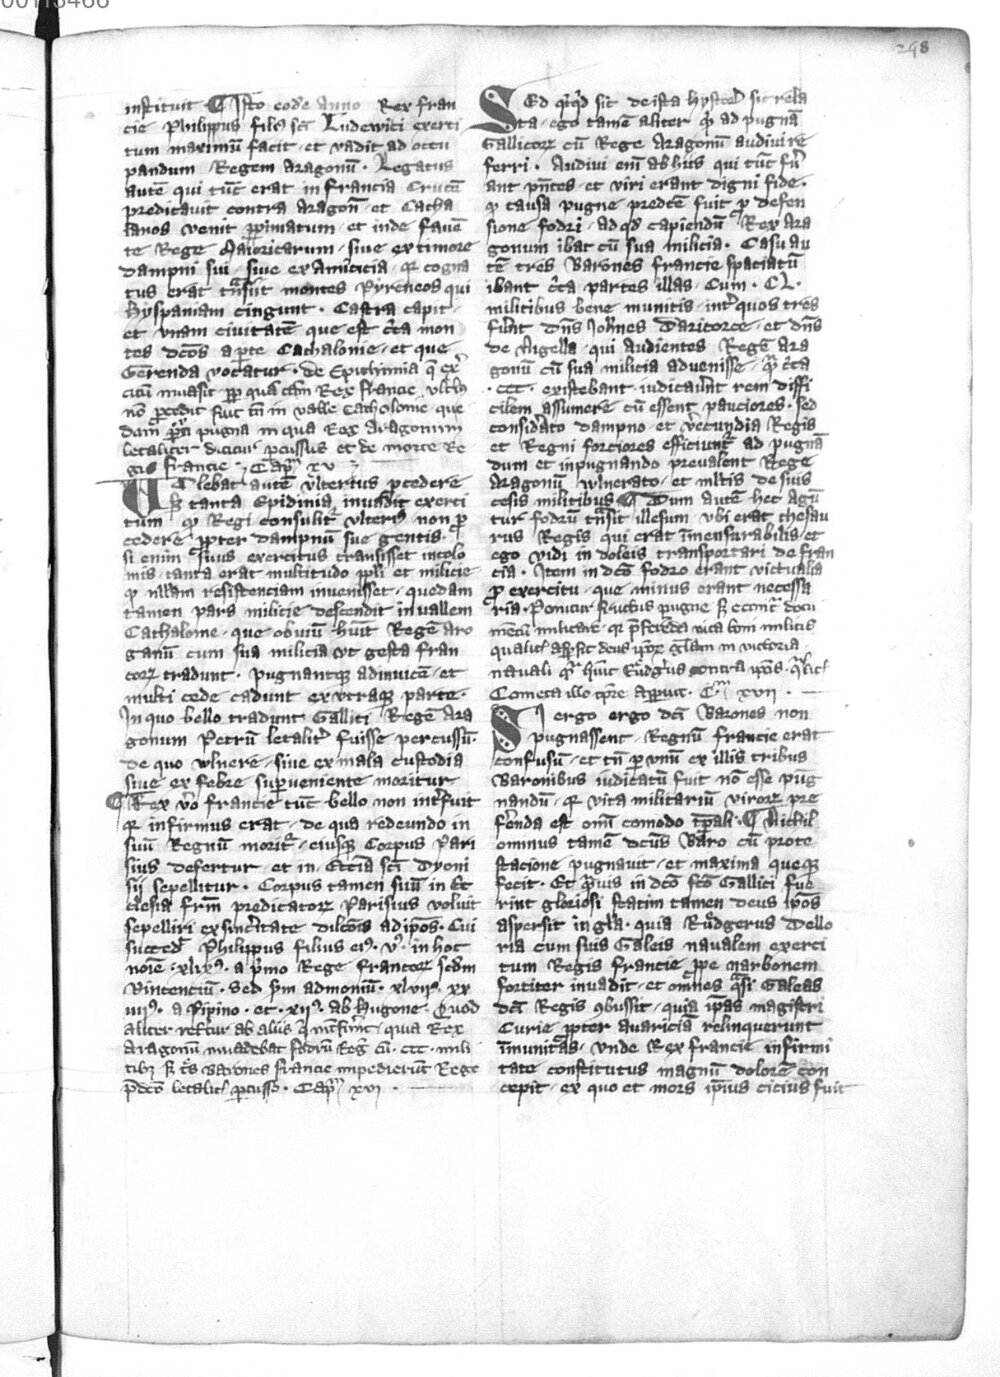 298
instituit ¶ Isto eodē anno Rex fran
cie Philippus filius sc̄i Ludewici exerci
tum maximū facit et vadit ad occu
pandum Regem aragonū. Legatus
autē qui tūc erat in francia Crucē
predicavit contra aragon̄ et Catha
lanos venit ꝑpinianum et inde favē
te Rege Maioricarum sive ex timore
dampni sui sive ex Amicicia qr̄ cogna
tus erat trāsiit montes Pyreneos qui
hyspaniam cingunt. Castra capit
et unam civitatē que est cīta mon
tes dc̄os a parte Cathalonie et que
Gerenda vocatur. de Epithimia q̄
invasit ꝓpter quā cām Rex francie ulti9
nō ꝓcedit fuit tn̄ in valle Catholonie que
dam pugna in qua Rex Aragonum
letaliter dicitur ꝑcussus et de morte Re
gis francie. Cap̄m xv
Olebat autē ulterius ꝓcedere
sꝫ tanta Epidimia invadit exerci
tum qꝫ Regi consulitur ulterius non ꝓ
cedere ꝓpter dampnū sue gentis. qꝫ
si enim suus exercitus transisset incolu
mis tanta erat multitudo ppl̄i et milicie
qꝫ nullam resistenciam invenisset. quedam
tamen pars milicie descendit in vallem
Cathalonie. que obviū huīt Regē Aro
ganū cum sua milicia ut gesta fran
corꝝ tradunt. pugnantqꝫ adinvicē et
multi cede cadunt ex utraqꝫ parte.
In quo bello tradunt Gallici Regē Ara
gonum Petrū letaliter fuisse percussū.
de quo vulnere. sive ex mala custodia
sive ex febre suꝑveniente moritur
¶ Rex v̄o francie tūc bello non int̄fuit
qr̄ infirmus erat. de qua redeundo in
suū Regnū moritur. eiusqꝫ Corpus Pari
sius defertur et in Ecc̄ia sc̄i Dyoni
sij sepellitur. Corpus tamen suū in Ec
clesia fr̄m predicatorꝝ Parisius voluit
sepelliri ex sinceritate dilc̄ois ad ip̄os. Cui
succedit Philippus filius eius. v9. in hoc
noīe. xlix9. a primo Rege francorꝝ scdm
Vincenciū. Sed sm̄ admoniū. xlvij9. xx
iiij9. a Pipino. et. xij9. ab Hugone. Quod
aliter refertur ab aliis quia Rex
Aragonū invadebat fodrū Regꝭ cū. ccc. mili
tibꝫ sꝫ tres Barones francie impedierūt Rege
p̄dc̄o letalit̄ percusso. Cap̄m xvi.
Sed quicquid sit de ista hystoria sic rela
ta. ego tamē aliter qꝫ ad pugnā
Gallicorꝝ cū Rege Aragonū audivi re
ferri. Audivi enī ab hiis qui tūc fu
ant pn̄tes et viri erant digni fide.
qꝫ causa pugne predc̄e fuit ꝓ defen
sione fodri. ad qd̄ capiendū Rex Ara
gonum ibat cū sua milicia. Casu au
tē tres Barones francie spaciatū
ibant c̄ca partes illas. Cum. CL.
militibus bene munitis. int̄ quos tres
fuīnt dn̄s Johannes Daricorce et dn̄s
de Nigella. qui audientes Regē Ara
gonū cū sua milicia advenisse. q̄ c̄ca
. ccc. existebant. iudicaūnt rem diffi
cilem assumere cū essent pauciores. sed
considerato dampno et verecundia Regis
et Regni forciores efficiuntur ad pugnā
dum et in pugnando prevalent Rege
Aragonū vulnerato. et multis de suis
cesis militibus ¶ Dum autē hec agū
tur fodrū trāsit illesum. ubi erat thesau
rus Regis qui erat īmensurabilis et
ego vidi in doleis transportari de fran
cia. Item in dc̄o fodro erant victualia
ꝓ exercitu. que minus erant necessa
ria. Ponitur fructus pugne sꝫ econtra docu
mentū milicie. qr̄ p̄ferēda vita boni militis
qualiter aspersit deus ipsorum glām in victoria
navali quā huit Rudgerus contra ip̄os. qualiter
Cometa illo tꝑe apparuit. C. xvii.
Si ergo ergo dc̄i Barones non
pugnassent. Regnū francie erat
confusū. et tn̄ per unū ex illis tribus
Baronibus iudicatū fuit nō esse pug
nandū. qr̄ vita militariū virorꝝ pre
ferenda est omni comodo tꝑali. ¶ Nichil
ominus tamē dc̄us Baro cū prote
stacione pugnavit. et maxima queqꝫ
fecit. Et quis in dc̄o fc̄o Gallici fue
rint gloriosi statim tamen deus ip̄os
aspersit in gl̄a. quia Rudgerus Dello
ria cum suis Galeis navalem exerci
tum Regis francie ꝓpe narbonem
fortiter invadit. et omnes q̄si Galeas
dc̄i Regis ꝯbussit. quia ip̄as magistri
Curie ꝓpter avariciā relinquerunt
īmunitas. unde Rex francie infirmi
tate constitutus magnū dolorē con
cepit. ex quo et mors ip̄ius cicius fuit